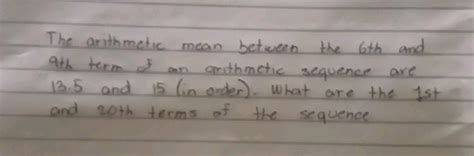 The arithmetic mean between the 6th and
9th term of an arithmetic sequence are
13.5 and 15 (in order). What are the 1st
and 20th terms of the sequence